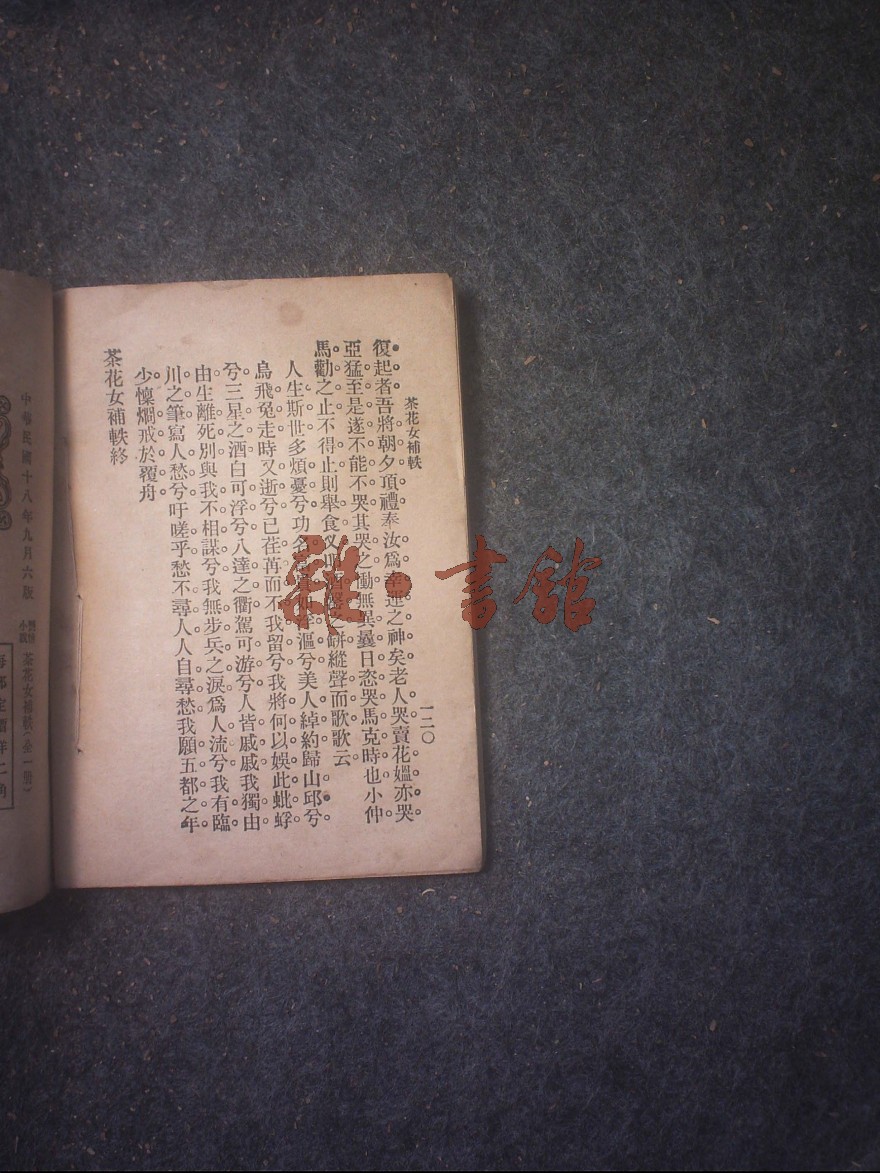 茶花女補軼
一二〇
復起者吾將朝夕頂禮奉汝爲幸運之神矣老人哭賣花媼亦哭
亞猛至是遂不能不哭其哭之慟無異曩日恣哭馬克時也小仲
馬勸之止不得止則舉食叉叩酒盤之缾縱聲而歌歌云
人生斯世多煩憂兮功名富貴如浮漚兮美人綽約歸山邱兮
烏飛兔走時又逝兮已荏苒而不我留兮我將何以娛此蚍蜉
兮三星之酒白可浮兮八達之衢駕可游兮人皆戚戚我獨由
由生離死別與我不相謀兮我無步兵之淚爲人流兮我有臨
川之筆寫人愁兮吁嗟乎愁不尋人人自尋愁我願五都之年
少懍燗戒於覆舟
茶花女補軼終
中華民國十八年九月六版
小說
茶花女補軼(全一冊)
每部定價洋二角
雜·書館